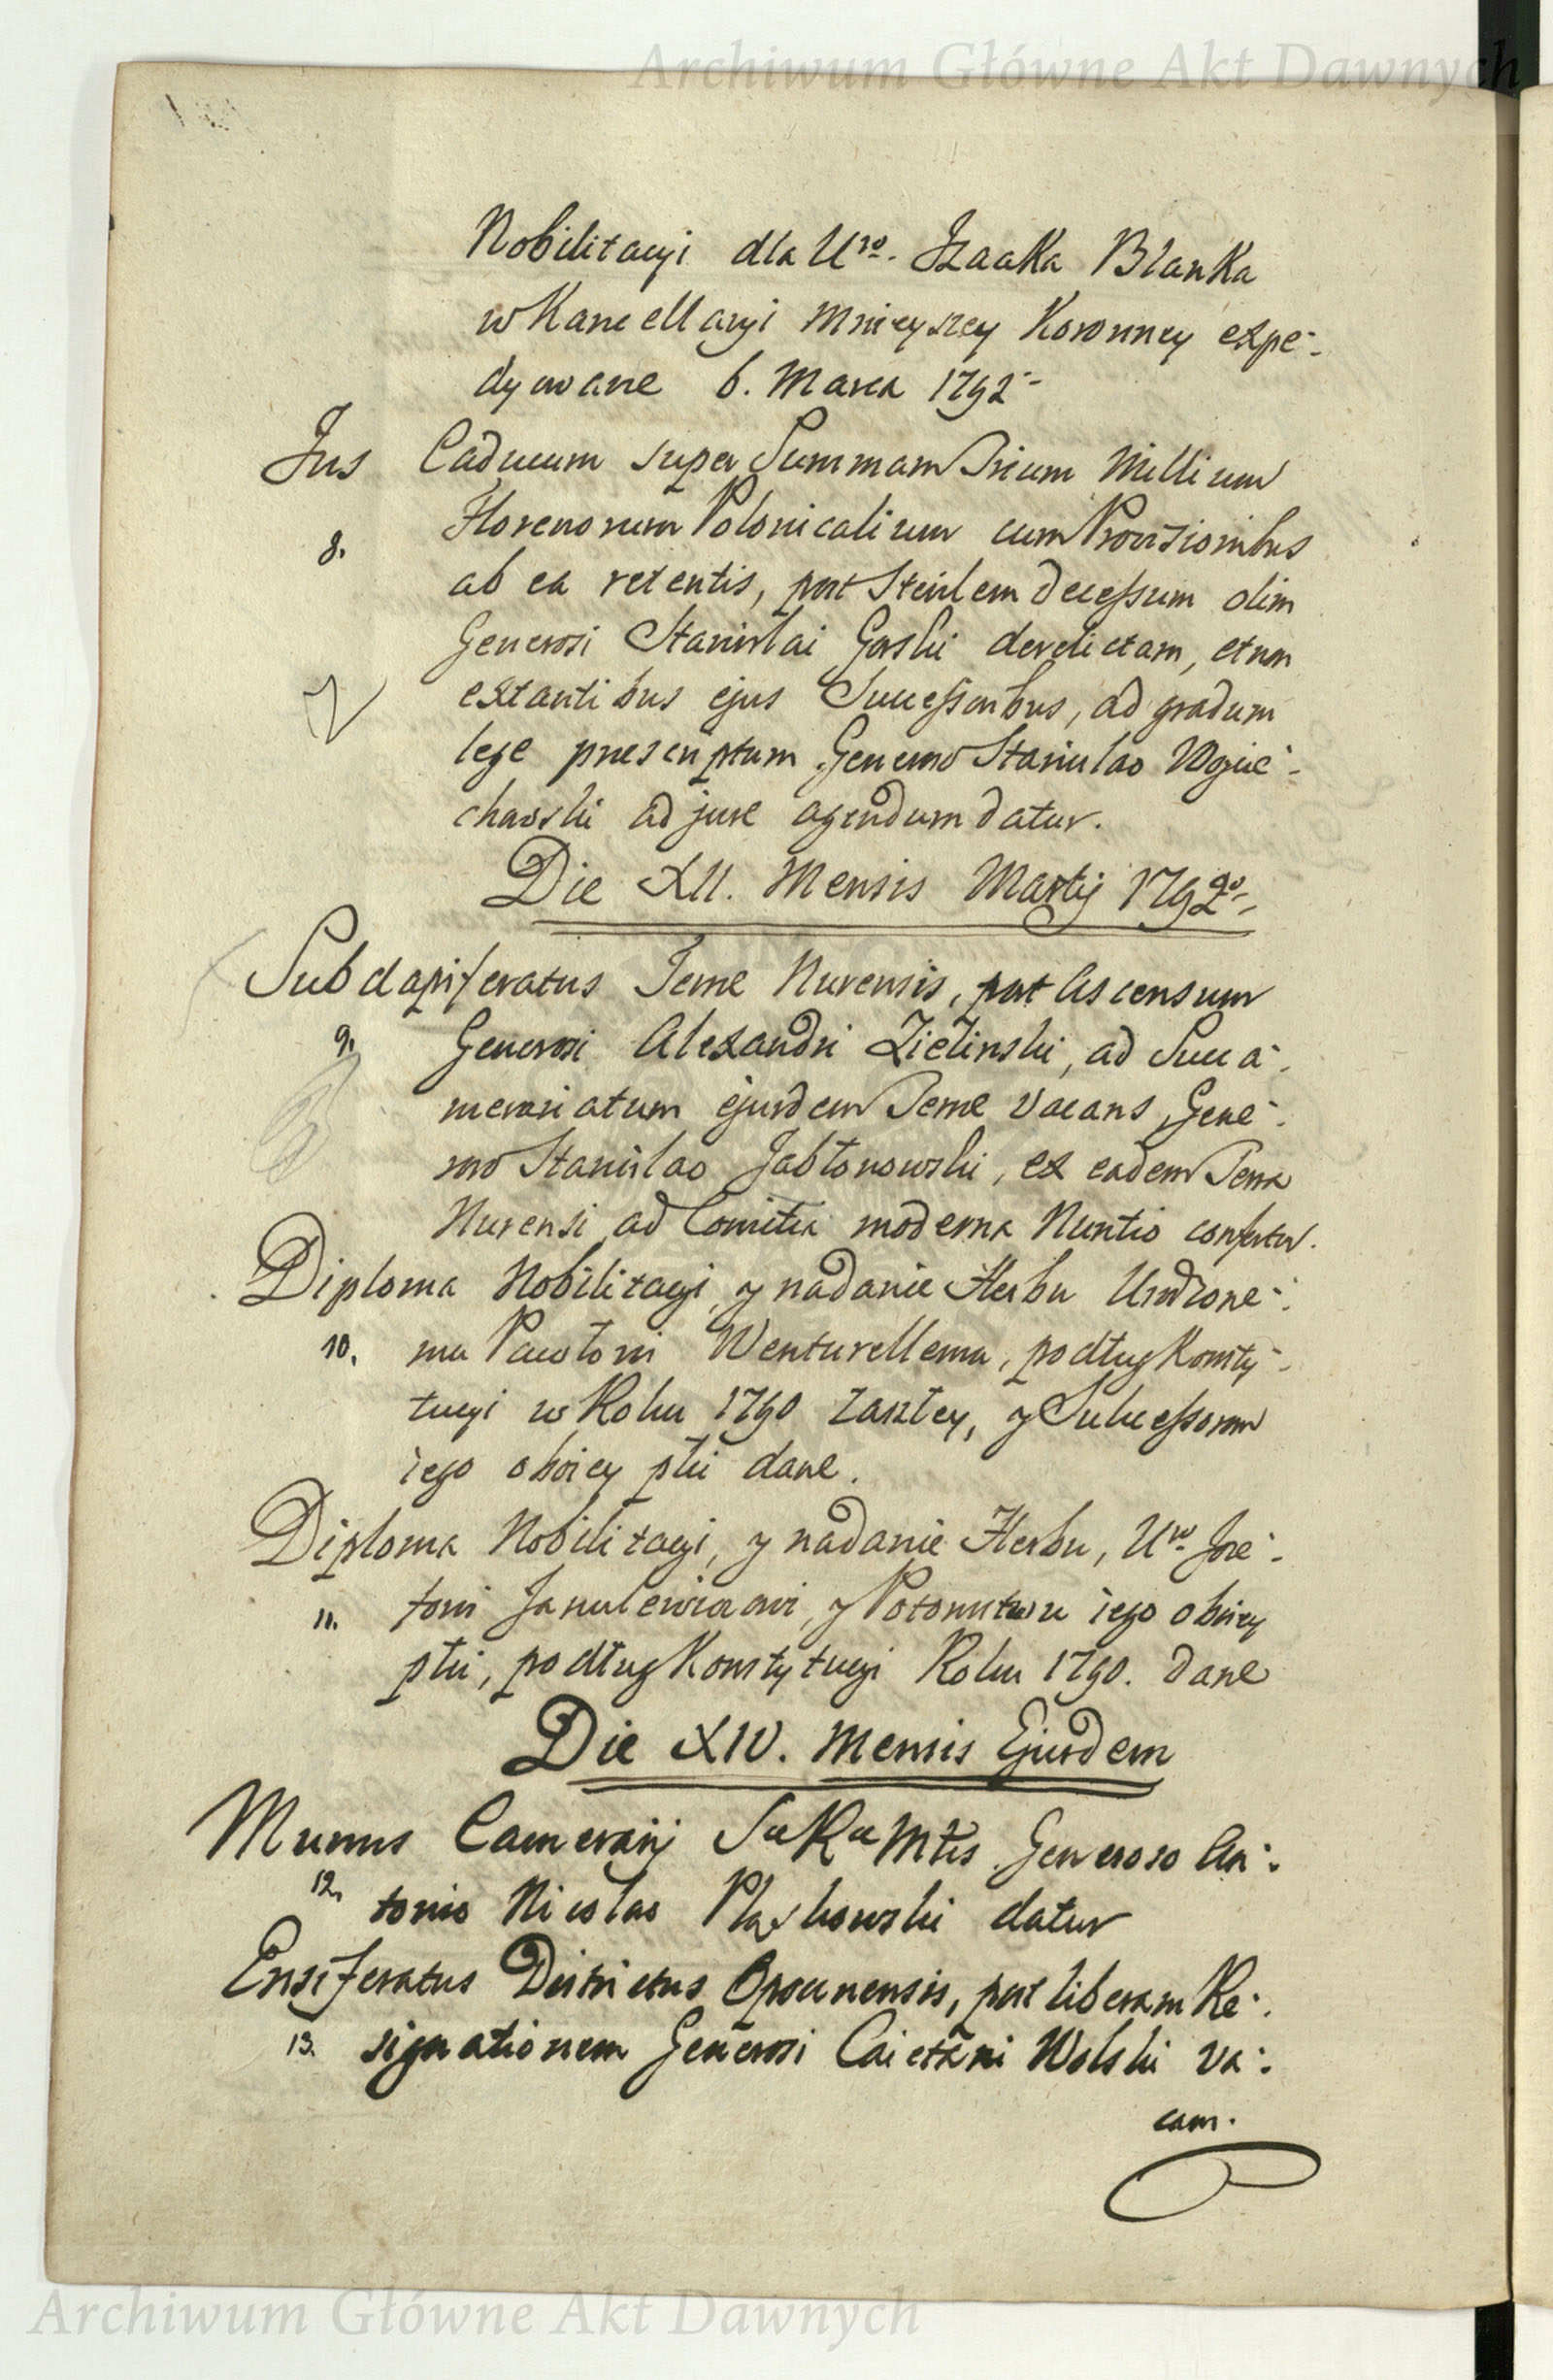 Archiwum Główne Akt Dawnych
Nobilitacyi dla Uro. Izaaka Blanka
w Kancellaryi Mnieyszey Koronney expe-
dyowane 6. Marca 1792-
Jus Caducum super Summam Trium Millium
8. Florenorum Polonicalium cum Provisionibus
ab ea retentis, post sterilem decessum olim
Generosi Stanislai Gorski derelictam, et non
extantibus ejus Successoribus, ad gradum
lege prescriptum Generoso Stanislao Woycie-
chowski ad jure agendum datur.
Die XII. Mensis Martij 1792do
Subdapiferatus Terrae Nurensis, post Ascensum
9. Generosi Alexandri Zieliński, ad Succa-
merariatum ejusdem Terrae vacans Gene-
roso Stanislao Jabłonowski, ex eadem Terra
Nurensi ad Comitia moderna Nuntio confertur.
Diploma Nobilitacyi, y nadanie Herbu Urodzone-
10. mu Pawłowi Wenturellemu, podług Konsty-
tucyi w Roku 1790 zaszłey, y Sukcessorom
iego oboiey płci dane.
Diploma Nobilitacyi, y nadanie Herbu, Uro. Joze-
11. fowi Janulewiczowi, y Potomstwu iego oboiey
płci, podług Konstytucyi Roku 1790. dane
Die XIV. Mensis Ejusdem
Munus Camerarij Sae Rae Mtis Generoso An-
12. tonio Nicolao datur
Ensiferatus Districtus Opocunensis, post liberam Re-
13. signationem Generosi Caietani Wolski va-
cam.
Archiwum Główne Akt Dawnych